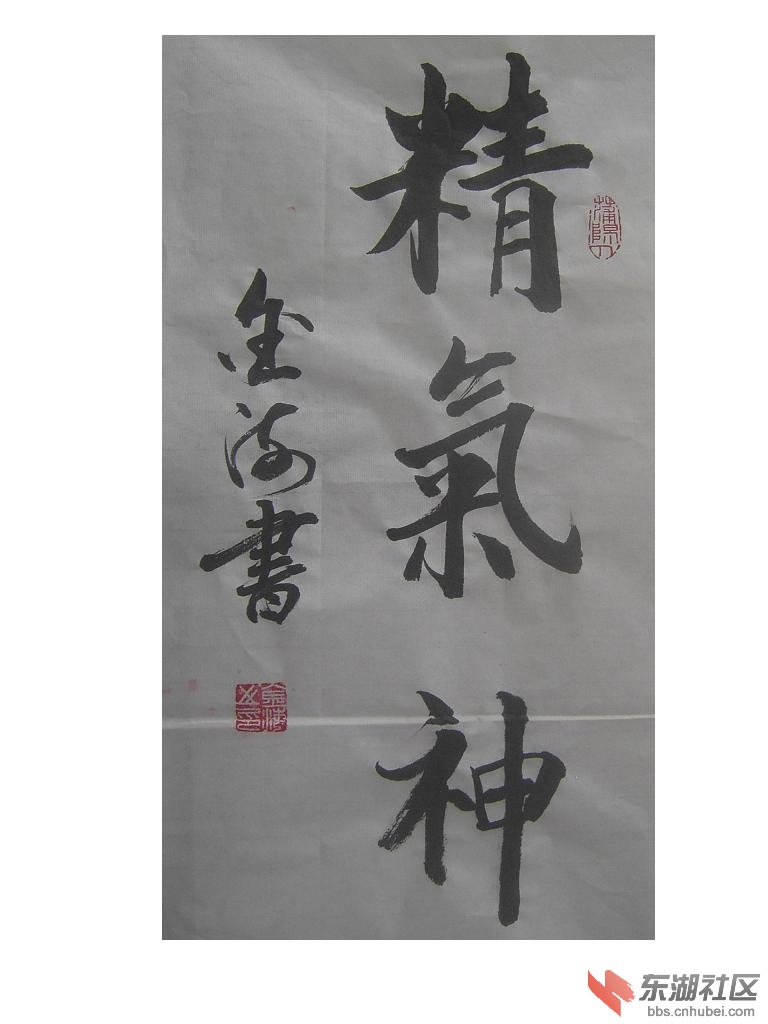 精氣神
金海書
东湖社区
bbs.cnhubei.com